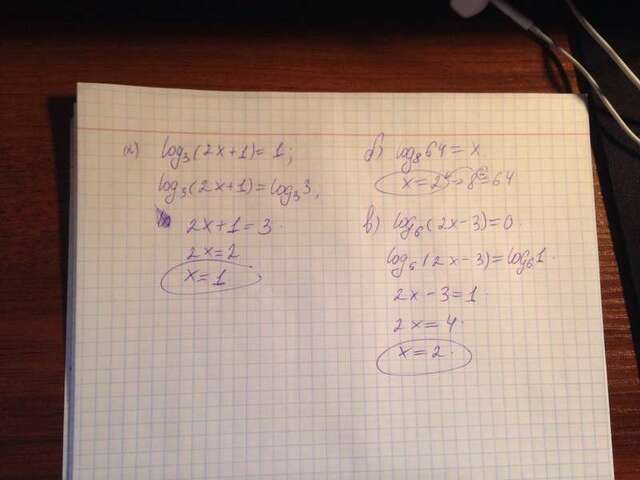 а) log₃(2x+1)=1;
log₃(2x+1)=log₃3,
2x+1=3.
2x=2
x=1
б) log₈64=x
x=2 → 8²=64
в) log₆(2x-3)=0.
log₆(2x-3)=log₆1.
2x-3=1.
2x=4.
x=2.